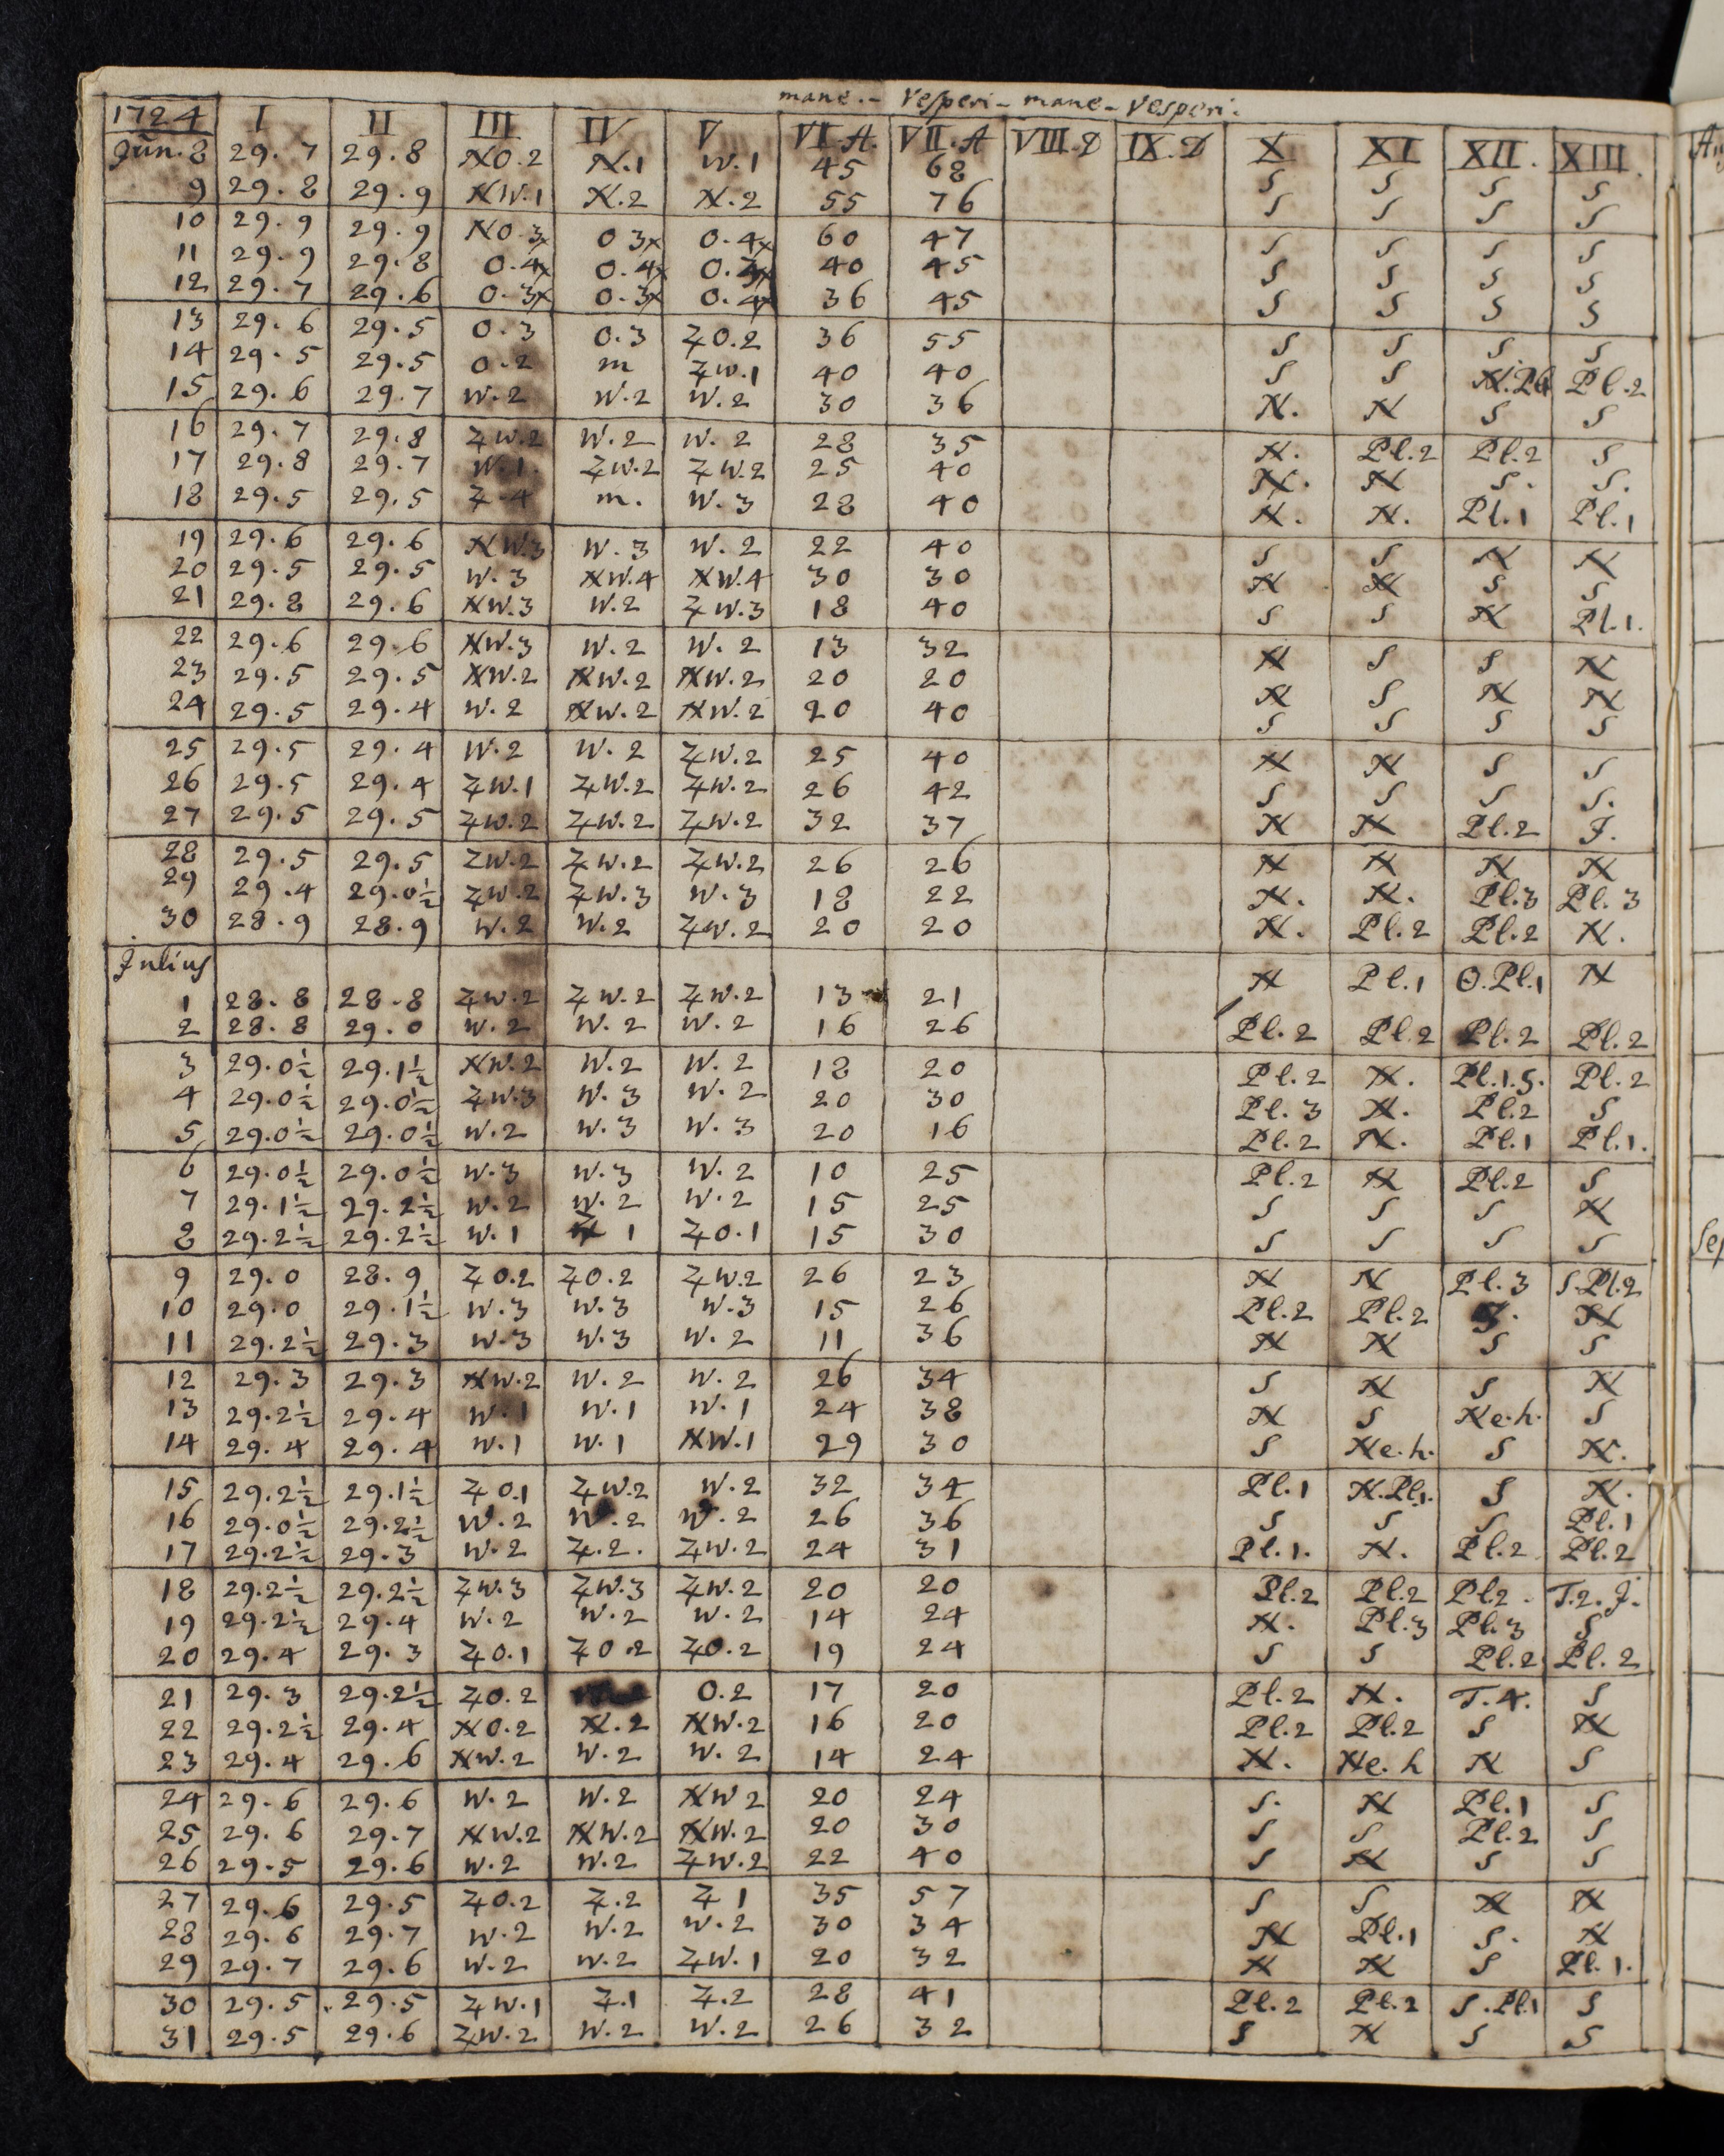 mane.- Vesperi- mane- Vesperi.
1724 I II III IV V VII.A. VII.A VIII.D IX.D X XI XII. XIII.
Jun. 8 29.7 29.8 NO.2 N.1 W.1 45 68 S S S S
9 29.8 29.9 NW.1 N.2 N.2 55 76 S S S S
10 29.9 29.9 NO.3x O 3x O.4x 60 47 S S S S
11 29.9 29.8 O.4x O.4x O. 40 45 S S S S
12 29.7 29.6 O.3x O.3x O.4x 36 45 S S S S
13 29.6 29.5 O.3 O.3 ZO.2 36 55 S S S S
14 29.5 29.5 O.2 m ZW.1 40 40 S S N.Pl Pl.2
15 29.6 29.7 W.2 W.2 W.2 30 36 N. N S S
16 29.7 29.8 ZW.2 W.2 W.2 28 35 N. Pl.2 Pl.2 S
17 29.8 29.7 W.1. ZW.2 ZW.2 25 40 N. N S. S.
18 29.5 29.5 Z.4 m. W.3 28 40 N. N. Pl.1 Pl.1
19 29.6 29.6 NW.3 W.3 W.2 22 40 S S N N
20 29.5 29.5 W.3 NW.4 NW.4 30 30 N N S S
21 29.8 29.6 NW.3 W.2 ZW.3 18 40 S S N Pl.1.
22 29.6 29.6 NW.3 W.2 W.2 13 32 N S S N
23 29.5 29.5 NW.2 NW.2 NW.2 20 20 N S N N
24 29.5 29.4 W.2 NW.2 NW.2 20 40 S S S S
25 29.5 29.4 W.2 W.2 ZW.2 25 40 N N S S
26 29.5 29.4 ZW.1 ZW.2 ZW.2 26 42 S S S S.
27 29.5 29.5 ZW.2 ZW.2 ZW.2 32 37 N N Pl.2 J.
28 29.5 29.5 ZW.2 ZW.2 ZW.2 26 26 N N N N
29 29.4 29.0½ ZW.2 ZW.3 W.3 18 22 N. N. Pl.3 Pl.3
30 28.9 28.9 W.2 W.2 ZW.2 20 20 N. Pl.2 Pl.2 N.
Julius
1 28.8 28.8 ZW.2 ZW.2 ZW.2 13 21 N Pl.1 O.Pl.1 N
2 28.8 29.0 W.2 W.2 W.2 16 26 Pl.2 Pl.2 Pl.2 Pl.2
3 29.0½ 29.1½ NW.2 W.2 W.2 18 20 Pl.2 N. Pl.1.S. Pl.2
4 29.0½ 29.0½ ZW.3 W.3 W.2 20 30 Pl.3 N. Pl.2 S
5 29.0½ 29.0½ W.2 W.3 W.3 20 16 Pl.2 N. Pl.1 Pl.1.
6 29.0½ 29.0½ W.3 W.3 W.2 10 25 Pl.2 N Pl.2 S
7 29.1½ 29.2½ W.2 W.2 W.2 15 25 S S S N
8 29.2½ 29.2½ W.1 Z 1 ZO.1 15 30 S S S S
9 29.0 28.9 ZO.2 ZO.2 ZW.2 26 23 N N Pl.3 S.Pl.2
10 29.0 29.1½ W.3 W.3 W.3 15 26 Pl.2 Pl.2 N
11 29.2½ 29.3 W.3 W.3 W.2 11 36 N N S S
12 29.3 29.3 NW.2 W.2 W.2 26 34 S N S N
13 29.2½ 29.4 W.1 W.1 W.1 24 38 N S Ne.h. S
14 29.4 29.4 W.1 W.1 NW.1 29 30 S Ne.h. S N.
15 29.2½ 29.1½ ZO.1 ZW.2 W.2 32 34 Pl.1 N.Pl.1. S N.
16 29.0½ 29.2½ W.2 W.2 W.2 26 36 S S S Pl.1
17 29.2½ 29.3 W.2 Z.2. ZW.2 24 31 Pl.1. N. Pl.2 Pl.2
18 29.2½ 29.2½ ZW.3 ZW.3 ZW.2 20 20 Pl.2 Pl.2 Pl.2. T.2.J.
19 29.2½ 29.4 W.2 W.2 W.2 14 24 N. Pl.3 Pl.3 S
20 29.4 29.3 ZO.1 ZO.2 ZO.2 19 24 S S Pl.2 Pl.2
21 29.3 29.2½ ZO.2 O.2 17 20 Pl.2 N. T.4. S
22 29.2½ 29.4 NO.2 N.2 NW.2 16 20 Pl.2 Pl.2 S N
23 29.4 29.6 NW.2 W.2 W.2 14 24 N. Ne.h N S
24 29.6 29.6 W.2 W.2 NW 2 20 24 S. N Pl.1 S
25 29.6 29.7 NW.2 NW.2 NW.2 20 30 S S Pl.2 S
26 29.5 29.6 W.2 W.2 ZW.2 22 40 S N S S
27 29.6 29.5 ZO.2 Z.2 Z 1 35 57 S S N N
28 29.6 29.7 W.2 W.2 W.2 30 34 N Pl.1 S. N
29 29.7 29.6 W.2 W.2 ZW.1 20 32 N N S Pl.1.
30 29.5 29.5 ZW.1 Z.1 Z.2 28 41 Pl.2 Pl.2 S.Pl.1 S
31 29.5 29.6 ZW.2 W.2 W.2 26 32 S N S S